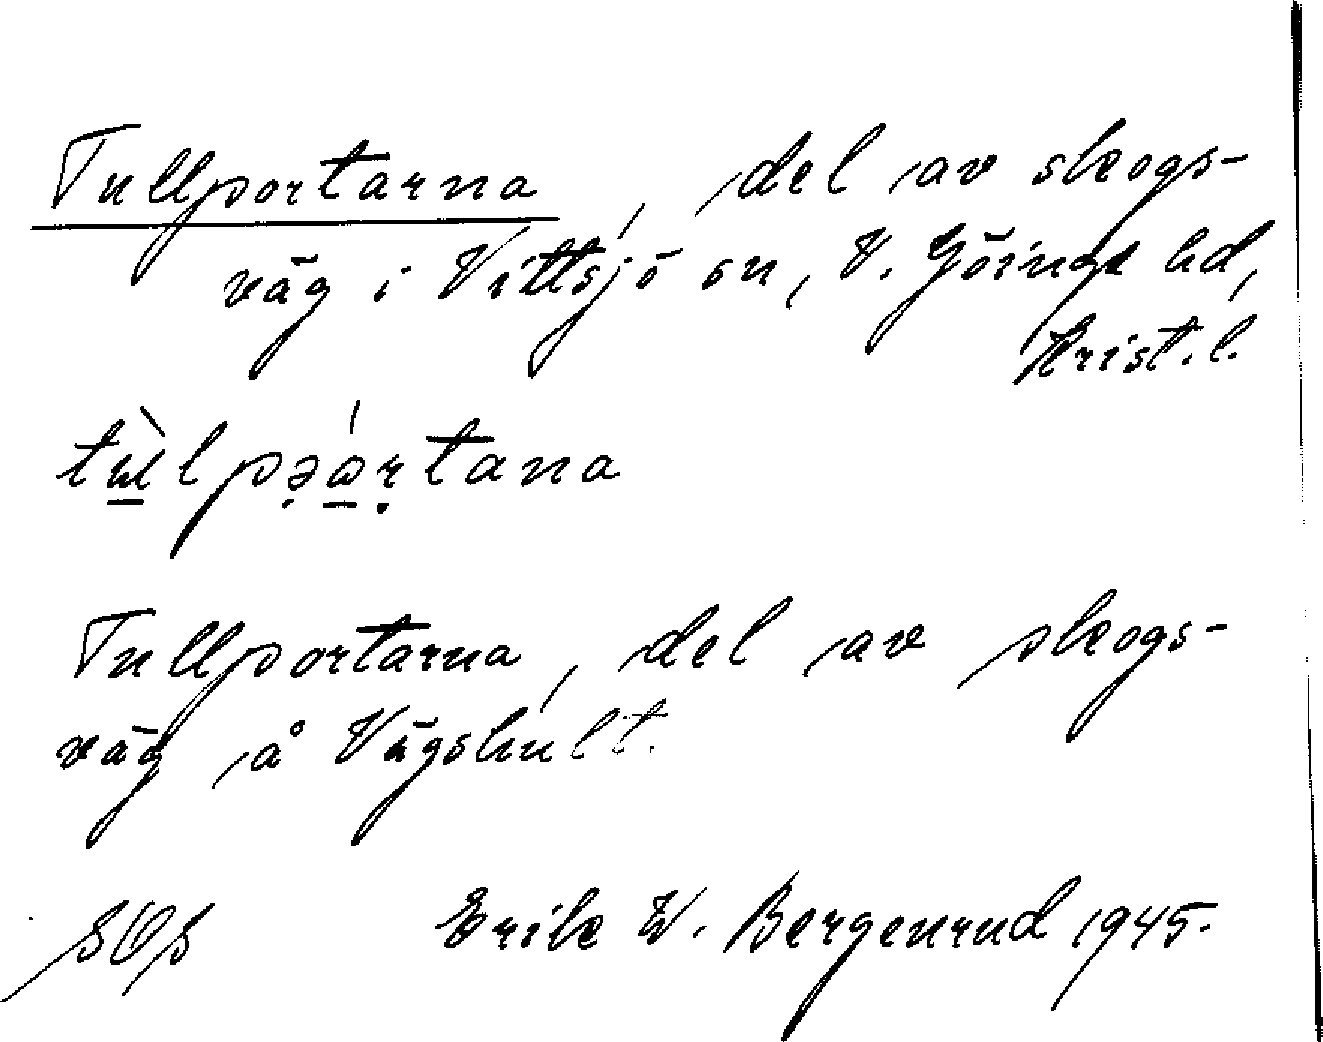 Tullportarna, del av skogs-
väg i Vittsjö sn, V. Göinge hd,
Krist. l.
Tullportarna, del av skogs-
väg å Vägshult.
SOS Erik W. Bergenrud 1945.